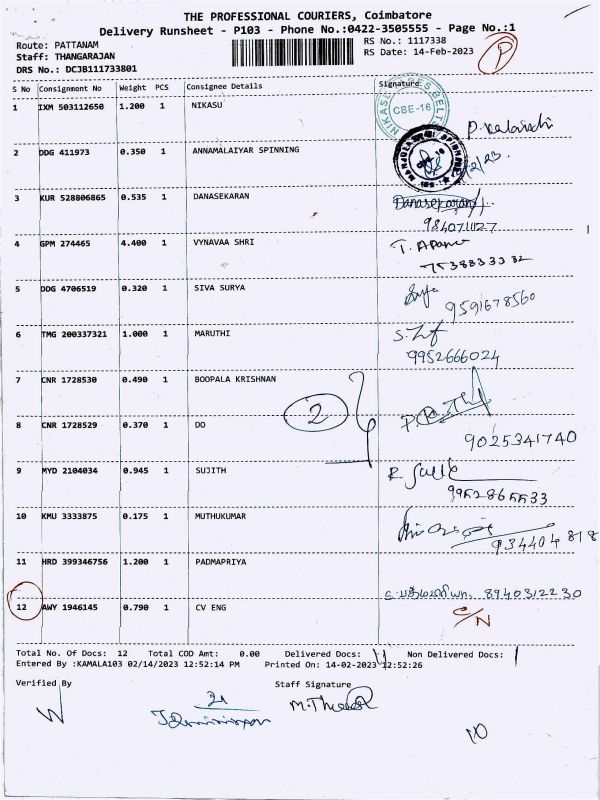 THE PROFESSIONAL COURIERS, Coimbatore
Delivery Runsheet - P103 - Phone No.:0422-3505555 - Page No.:1
Route: PATTANAM
RS No.: 1117338
Staff: THANGARAJAN
RS Date: 14-Feb-2023
DRS No.: DCJB111733801
P
S No Consignment No Weight PCS Consignee Details Signature
1 IXM 503112650 1.200 1 NIKASU
CBE-16
2 DDG 411973 0.350 1 ANNAMALAIYAR SPINNING
3 KUR 528806865 0.535 1 DANASEKARAN Danasekaran
984071127
4 GPM 274465 4.400 1 VYNAVAA SHRI
7538833332
5 DDG 4706519 0.320 1 SIVA SURYA
9591678560
6 TMG 200337321 1.000 1 MARUTHI
9952666024
7 CNR 1728530 0.490 1 BOOPALA KRISHNAN
2
8 CNR 1728529 0.370 1 DO
9025341740
9 MYD 2104034 0.945 1 SUJITH
9952865533
10 KMU 3333875 0.175 1 MUTHUKUMAR
934404818
11 HRD 399346756 1.200 1 PADMAPRIYA
8940312230
12 AWY 1946145 0.790 1 CV ENG C/N
Total No. Of Docs: 12 Total COD Amt: 0.00 Delivered Docs: 11 Non Delivered Docs: 1
Entered By :KAMALA103 02/14/2023 12:52:14 PM Printed On: 14-02-2023 12:52:26
Verified By Staff Signature
21